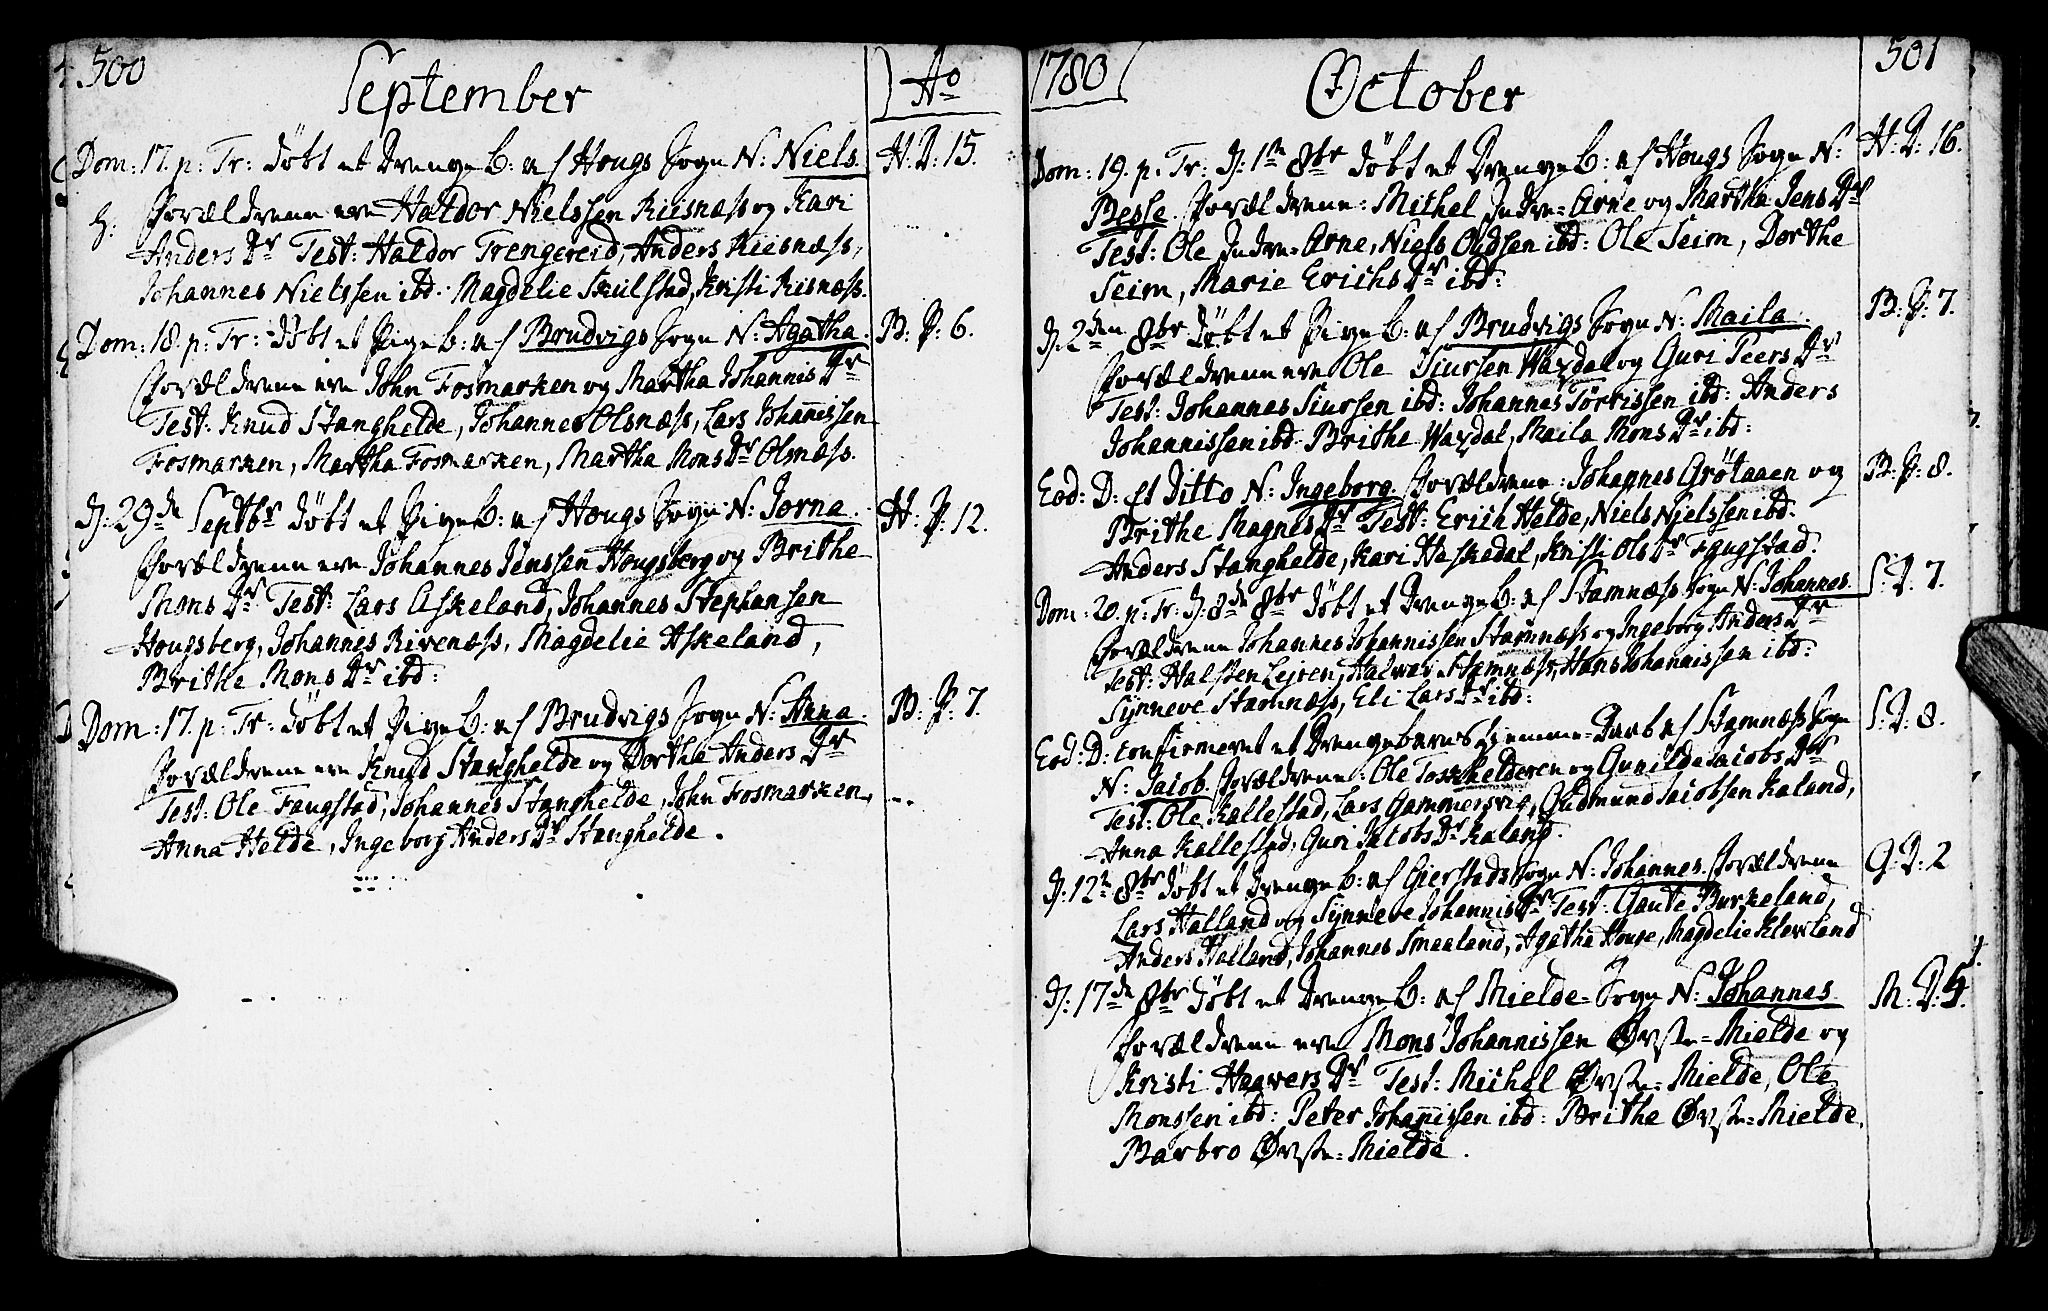 500
September
Ao
Dom: 17. p: Tr: døbt et Drenge B: af Hougs Sogn N: Niels
H: D: 15.
Forældrene ere Haldor Nielssen Riisnæss og Kari
Anders Dr Test: Haldor Trengereid, Anders Riisnæss,
Johannes Nielssen ibd: Magdelie Skulstad, Kristi Risnæss.
Dom: 18. p: Tr: døbt et Pige B: af Brudvigs Sogn N: Agatha.
B: P: 6.
Forældrene ere John Fosmarken og Martha Johannis Dr
Test: Knud Stanghelde, Johannes Olsnæss, Lars Johannissen
Fosmarken, Martha Fosmarken, Martha Mons Dr Olsnæss.
D: 29de Septbr døbt et Pige B: af Hougs Sogn N: Jorna.
H: P: 12.
Forældrene ere Johannes Jenssen Hougsberg og Brithe
Mons Dr Test: Lars Askeland, Johannes Stephansen
Hougsberg, Johannes Rivenæss, Magdelie Askeland,
Brithe Mons Dr ibd:
Dom: 17. p: Tr: døbt et Pige B: af Brudvigs Sogn N: Anna
B: P: 7.
Forældrene ere Knud Stanghelde og Dortha Anders Dr
Test: Ole Faugstad, Johannes Stanghelde, John Fosmarken,
Anna Helde, Ingeborg Anders Dr Stanghelde.
1780
October
501
Dom: 19. p. Tr: D: 1ste 8br døbt et Drenge B: af Hougs Sogn N:
H: D: 16.
Besse. Forældrene: Mithel Indre=Arne og Martha Jens Dr
Test: Ole Indre=Arne, Niels Oldsen ibd: Ole Seim, Dorthe
Seim, Marie Erichs Dr ibd:
D: 2den 8br døbt et Pige B: af Brudvigs Sogn N: Maila.
B: P: 7.
Forældrene ere Ole Siursen Waxdal og Guri Peers Dr
Test: Johannes Siursen ibd: Johannes Torrissen ibd: Anders
Johannissen ibd: Brithe Waxdal, Maila Mons Dr ibd:
Eod: D: et Ditto N: Ingeborg Forældrene: Johannes Grötaaen og
B: P: 8.
Brithe Magnes Dr Test: Erich Helde, Niels Nielssen ibd:
Anders Stanghelde, Kari Haskedal, Kristi Ols Dr Faugstad.
Dom: 20. p: Tr: D: 8de 8br døbt et Drenge B: af Stamnæss Sogn N: Johannes.
S: D: 7.
Forældrene Johannes Johannissen Stamnæss og Ingeborg Anders Dr
Test: Halsten Leiren, Halvor Stamnæss, Hans Johannissen ibd:
Synneve Stamnæss, Eli Lars Dr ibd:
Eod: D: confirmeret et Drengebarns Hiemme-Daab af Stamnæss Sogn
S: D: 8.
N: Jacob. Forældrene: Ole Toskhelderen og Gunilde Jacobs Dr
Test: Ole Kallestad, Lars Gammersvig, Gudmund Jacobsen Kaland,
Anna Kallestad, Guri Jacobs Dr Kaland.
D: 12te 8br døbt et Drenge B: af Gierstads Sogn N: Johannes. Forældrene
G: D: 2
Lars Halland og Synneve Johannis Dr Test: Gaute Burkeland,
Anders Halland, Johannes Smaaland, Agatha House, Magdelie Klevland
D: 17de 8br døbt et Drenge B: af Mielde=Sogn N: Johannes
M: D: 5.
Forældrene ere Mons Johannissen Øvste=Mielde og
Kristi Haavers Dr Test: Michel Øvste=Mielde, Ole
Monssen ibd: Peter Johannissen ibd: Brithe Øvste=Mielde,
Barbro Øvste=Mielde.